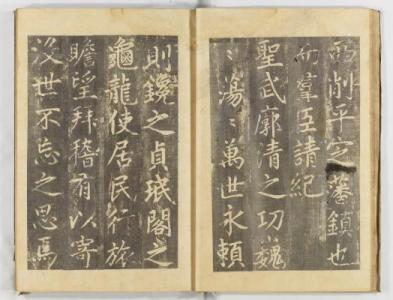 西削平定藩鎮也
而羣臣請紀
聖武廓清之功巍
〻蕩〻萬世永賴
則鑱之貞珉閣之
龜龍使居民行旅
瞻望拜稽有以寄
沒世不忘之思焉